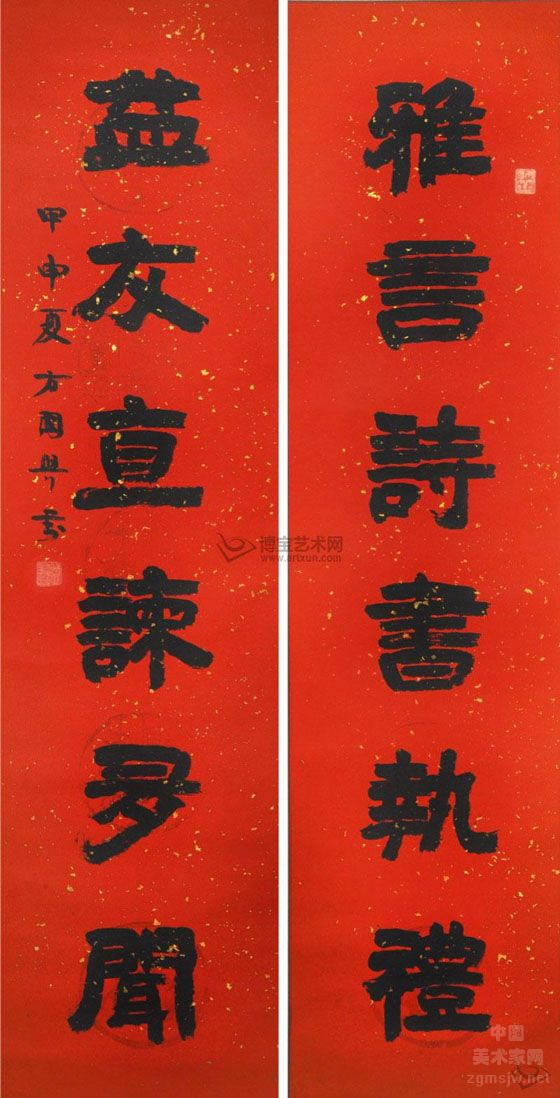 雅言詩書執禮
益友直諫多聞
甲申夏方國興
博宝艺术网
www.artxun.com
中国
美术家网
zgmsjw.net